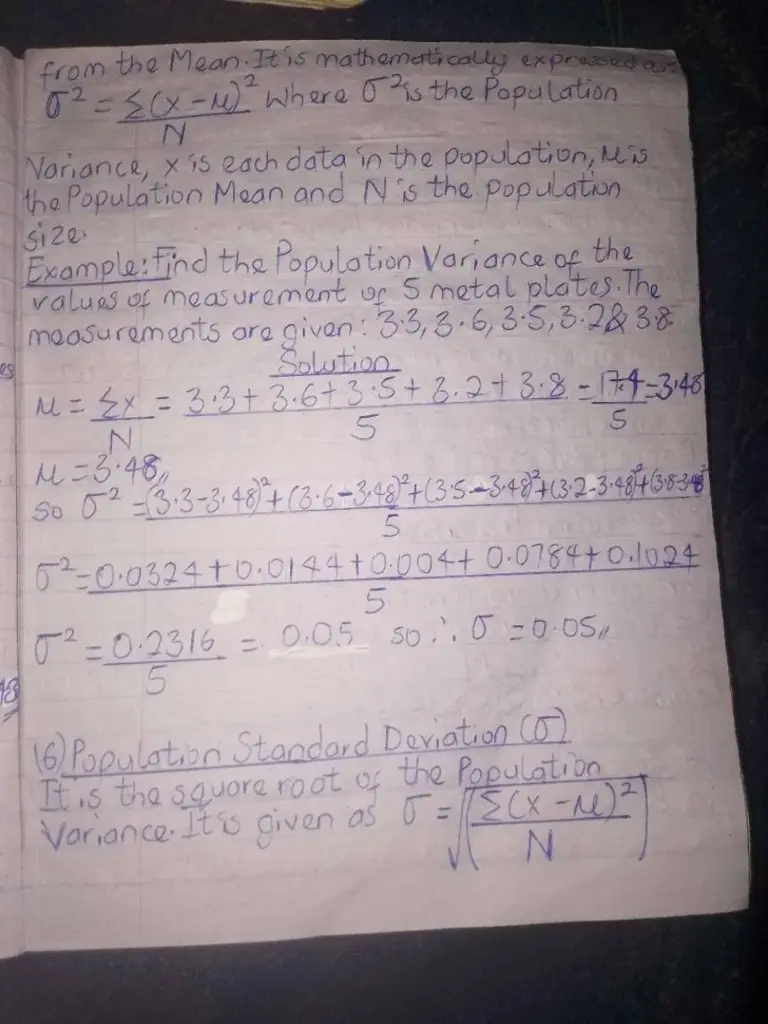 from the Mean. It is mathematically expressed as:
σ² = Σ(x - μ)² Where σ² is the Population
N
Variance, x is each data in the population, μ is
the Population Mean and N is the population
size.
Example: Find the Population Variance of the
values of measurement of 5 metal plates. The
measurements are given: 3.3, 3.6, 3.5, 3.2 & 3.8
Solution
μ = Σx = 3.3 + 3.6 + 3.5 + 3.2 + 3.8 = 17.4 = 3.48
N 5 5
μ = 3.48,,
so σ² = (3.3-3.48)² + (3.6-3.48)² + (3.5-3.48)² + (3.2-3.48)² + (3.8-3.48)²
5
σ² = 0.0324 + 0.0144 + 0.004 + 0.0784 + 0.1024
5
σ² = 0.2316 = 0.05 so ∴ σ = 0.05,,
5
(6) Population Standard Deviation (σ)
It is the square root of the Population
Variance. It is given as σ = √(Σ(x - μ)²
N)
es
48